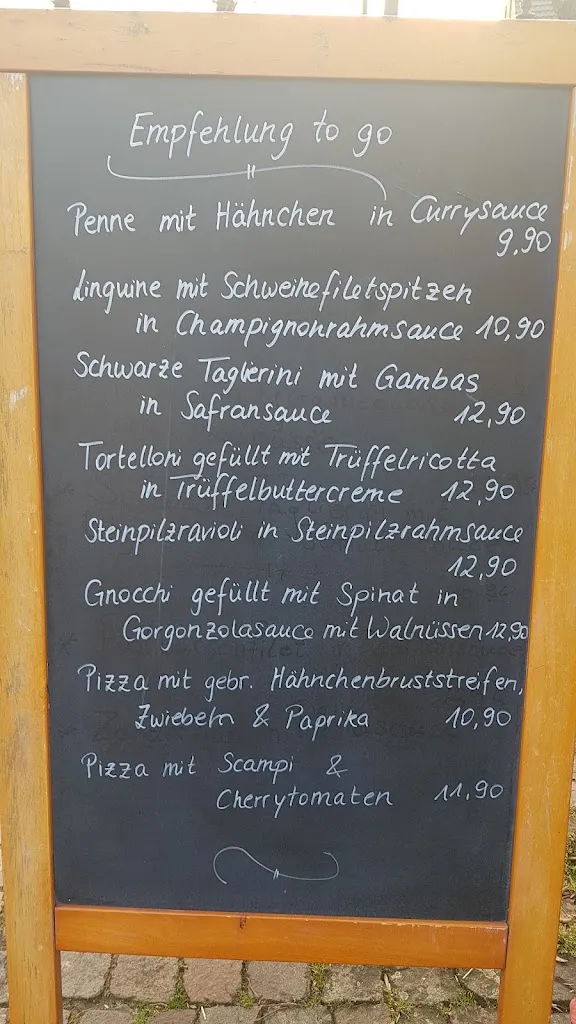 Empfehlung to go
Penne mit Hähnchen in Currysauce
9,90
Linguine mit Schweinefiletspitzen
in Champignonrahmsauce 10,90
Schwarze Taglierini mit Gambas
in Safransauce 12,90
Tortelloni gefüllt mit Trüffelricotta
in Trüffelbuttercreme 12,90
Steinpilzravioli in Steinpilzrahmsauce
12,90
Gnocchi gefüllt mit Spinat in
Gorgonzolasauce mit Walnüssen 12,90
Pizza mit gebr. Hähnchenbruststreifen,
Zwiebeln & Paprika 10,90
Pizza mit Scampi &
Cherrytomaten 11,90